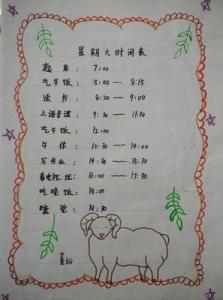 星期六时间表
起床: 7:00
吃早饭: 8:00 —— 8:15
读书: 8:30 —— 9:00
上语音课: 9:30 —— 11:30
吃午饭: 12:00
午休: 12:30 —— 14:00
写作业: 14:30 —— 16:30
看电视: 16:30 —— 17:30
吃晚饭: 18:00
睡觉: 20:30